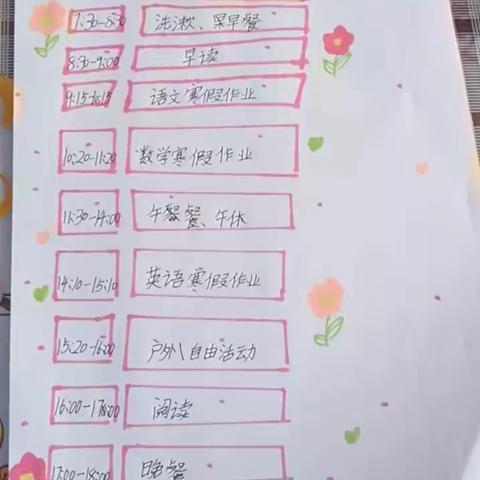 7:30-8:30 洗漱、早餐
8:30-9:00 早读
9:15-10:15 语文寒假作业
10:20-11:20 数学寒假作业
11:30-14:00 午餐、午休
14:10-15:10 英语寒假作业
15:20-16:00 户外自由活动
16:00-17:00 阅读
17:00-18:00 晚餐